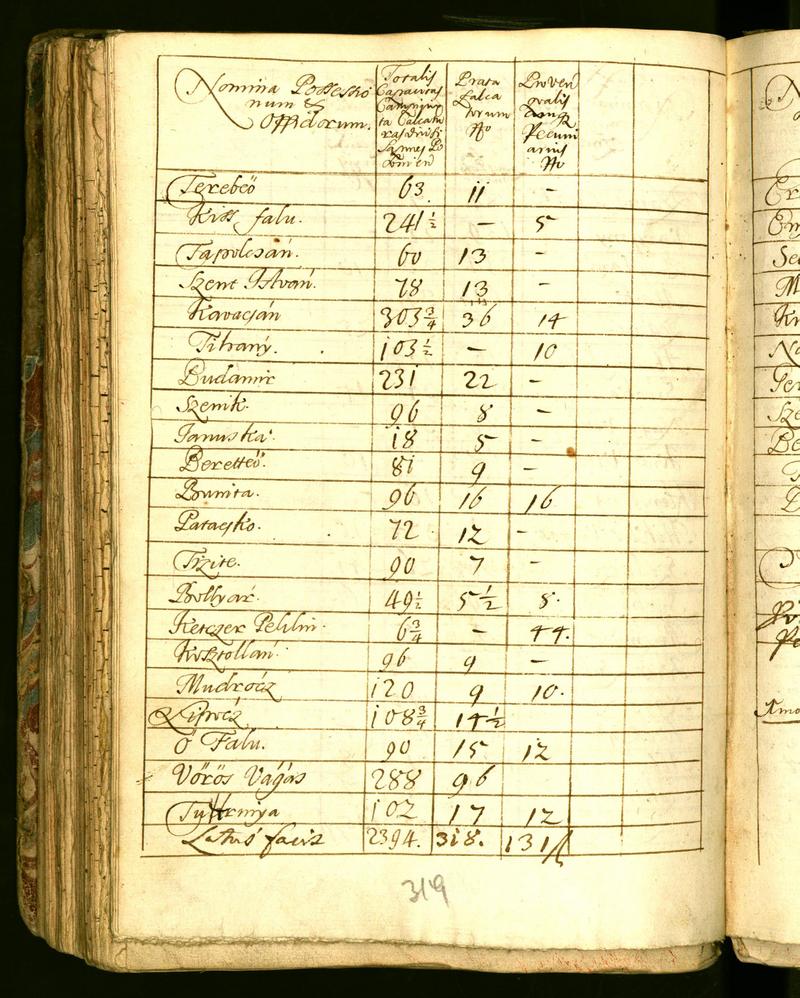 Nomina Possessio
num &
Oppidorum.
Totalis
Capacitas
Prata
Falca
torum
Nro
Proven
Pecuni
arius
Nro
Terebeö 63. 11 -
Kiss falu. 241 1/2 - 5
Tapolcsán. 60 13 -
Szent István. 78 13 -
Kavacsán 303 3/4 36 14
Tihany. 103 1/2 - 10
Budamir 231 22 -
Szenik. 96 8 -
Januska. 18 5 -
Beretteö. 81 9 -
Bunita. 96 16 16
Patacsko. 72 12 -
Trzite. 90 7 -
Bollyar. 49 1/2 5 1/2 8.
Kerczer Peklin. 6 3/4 - 44.
Kosztollan. 96 9 -
Mudrocz 120 9 10.
Lipocz 108 3/4 14 1/2
Ö Falu. 90 15 12
Vörös Vágás 288 96
Tuhrinya 102 17 12
Latus facit 2394. 318. 131
319